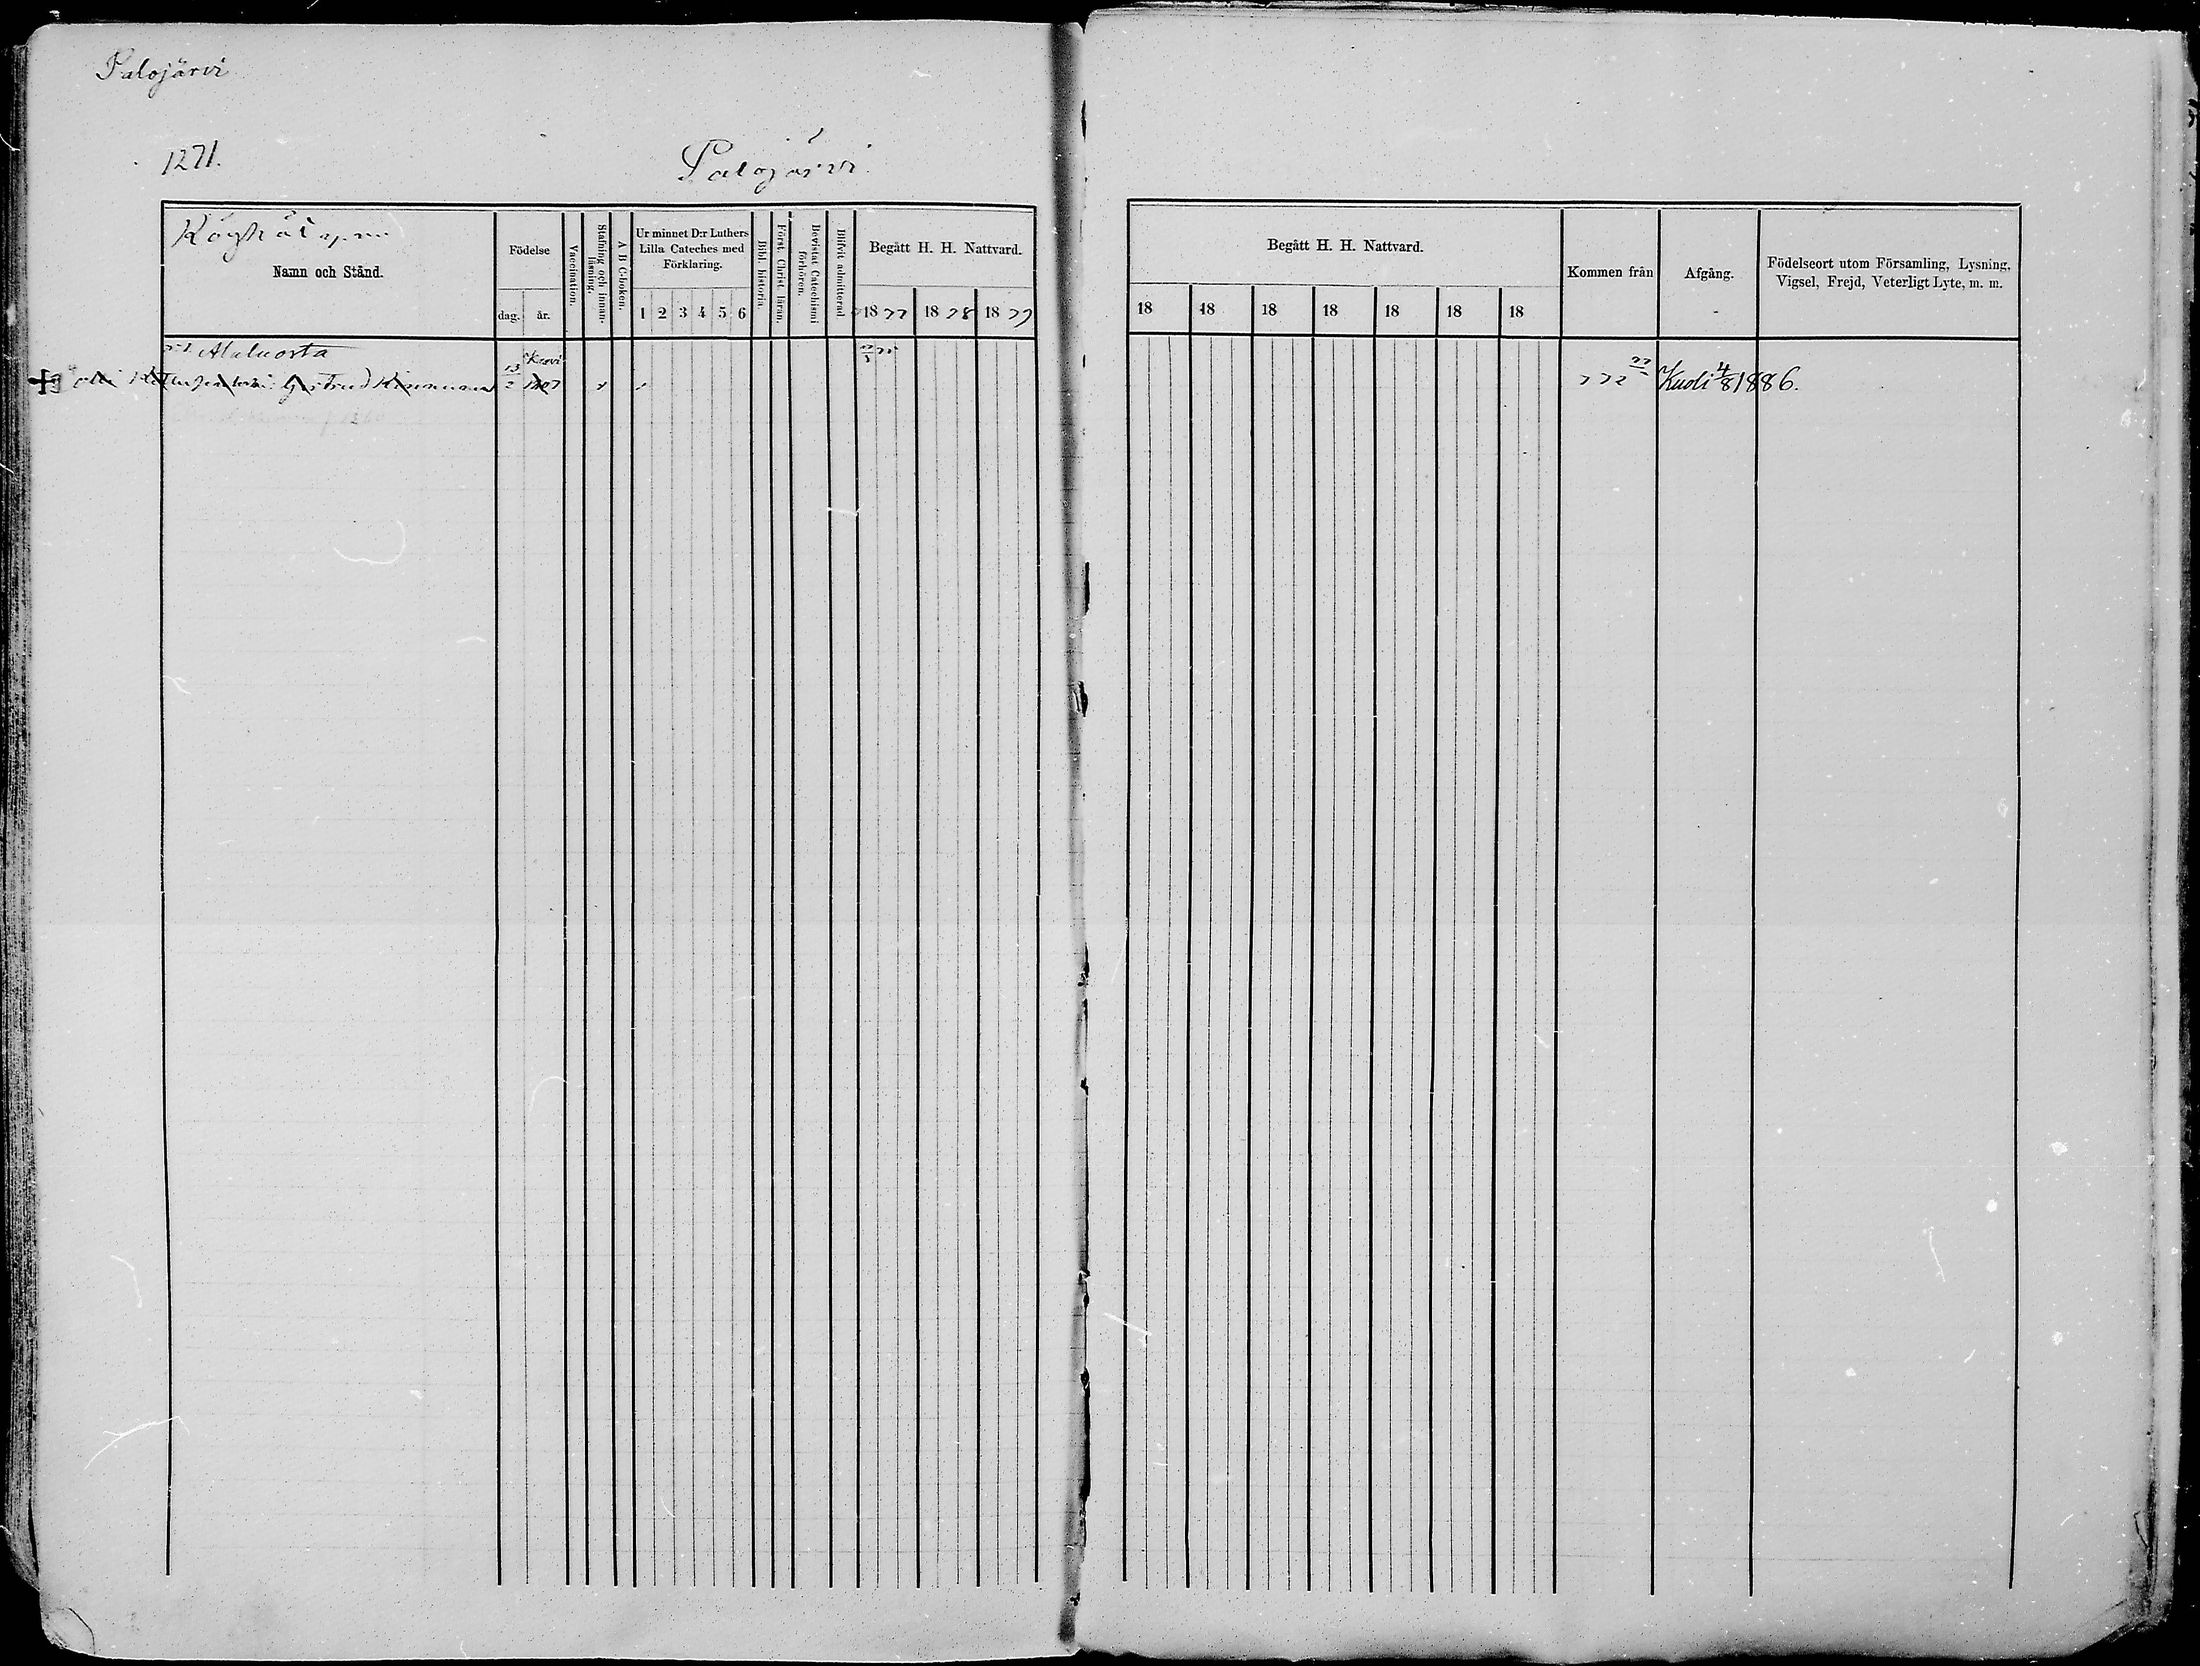 Palojärvi
1271.
Palojärvi.
Namn och Stånd.
Födelse
dag. år.
Vaccination.
Stafning och innanläsning.
A B C-boken.
Ur minnet D:r Luthers
Lilla Cateches med
Förklaring.
1 2 3 4 5 6
Bibl. historia.
Först. Christ. läran.
Bevistat Catechismi
förhören.
Blifvit admitterad
Begått H. H. Nattvard.
1877 1878 1879
Begått H. H. Nattvard.
18 18 18 18 18 18 18
Kommen från
Afgång.
Födelseort utom Församling, Lysning,
Vigsel, Frejd, Veterligt Lyte, m. m.
Alaluosta
Gertrud 13/2 1807
772 Kuoli 4/8 1886.